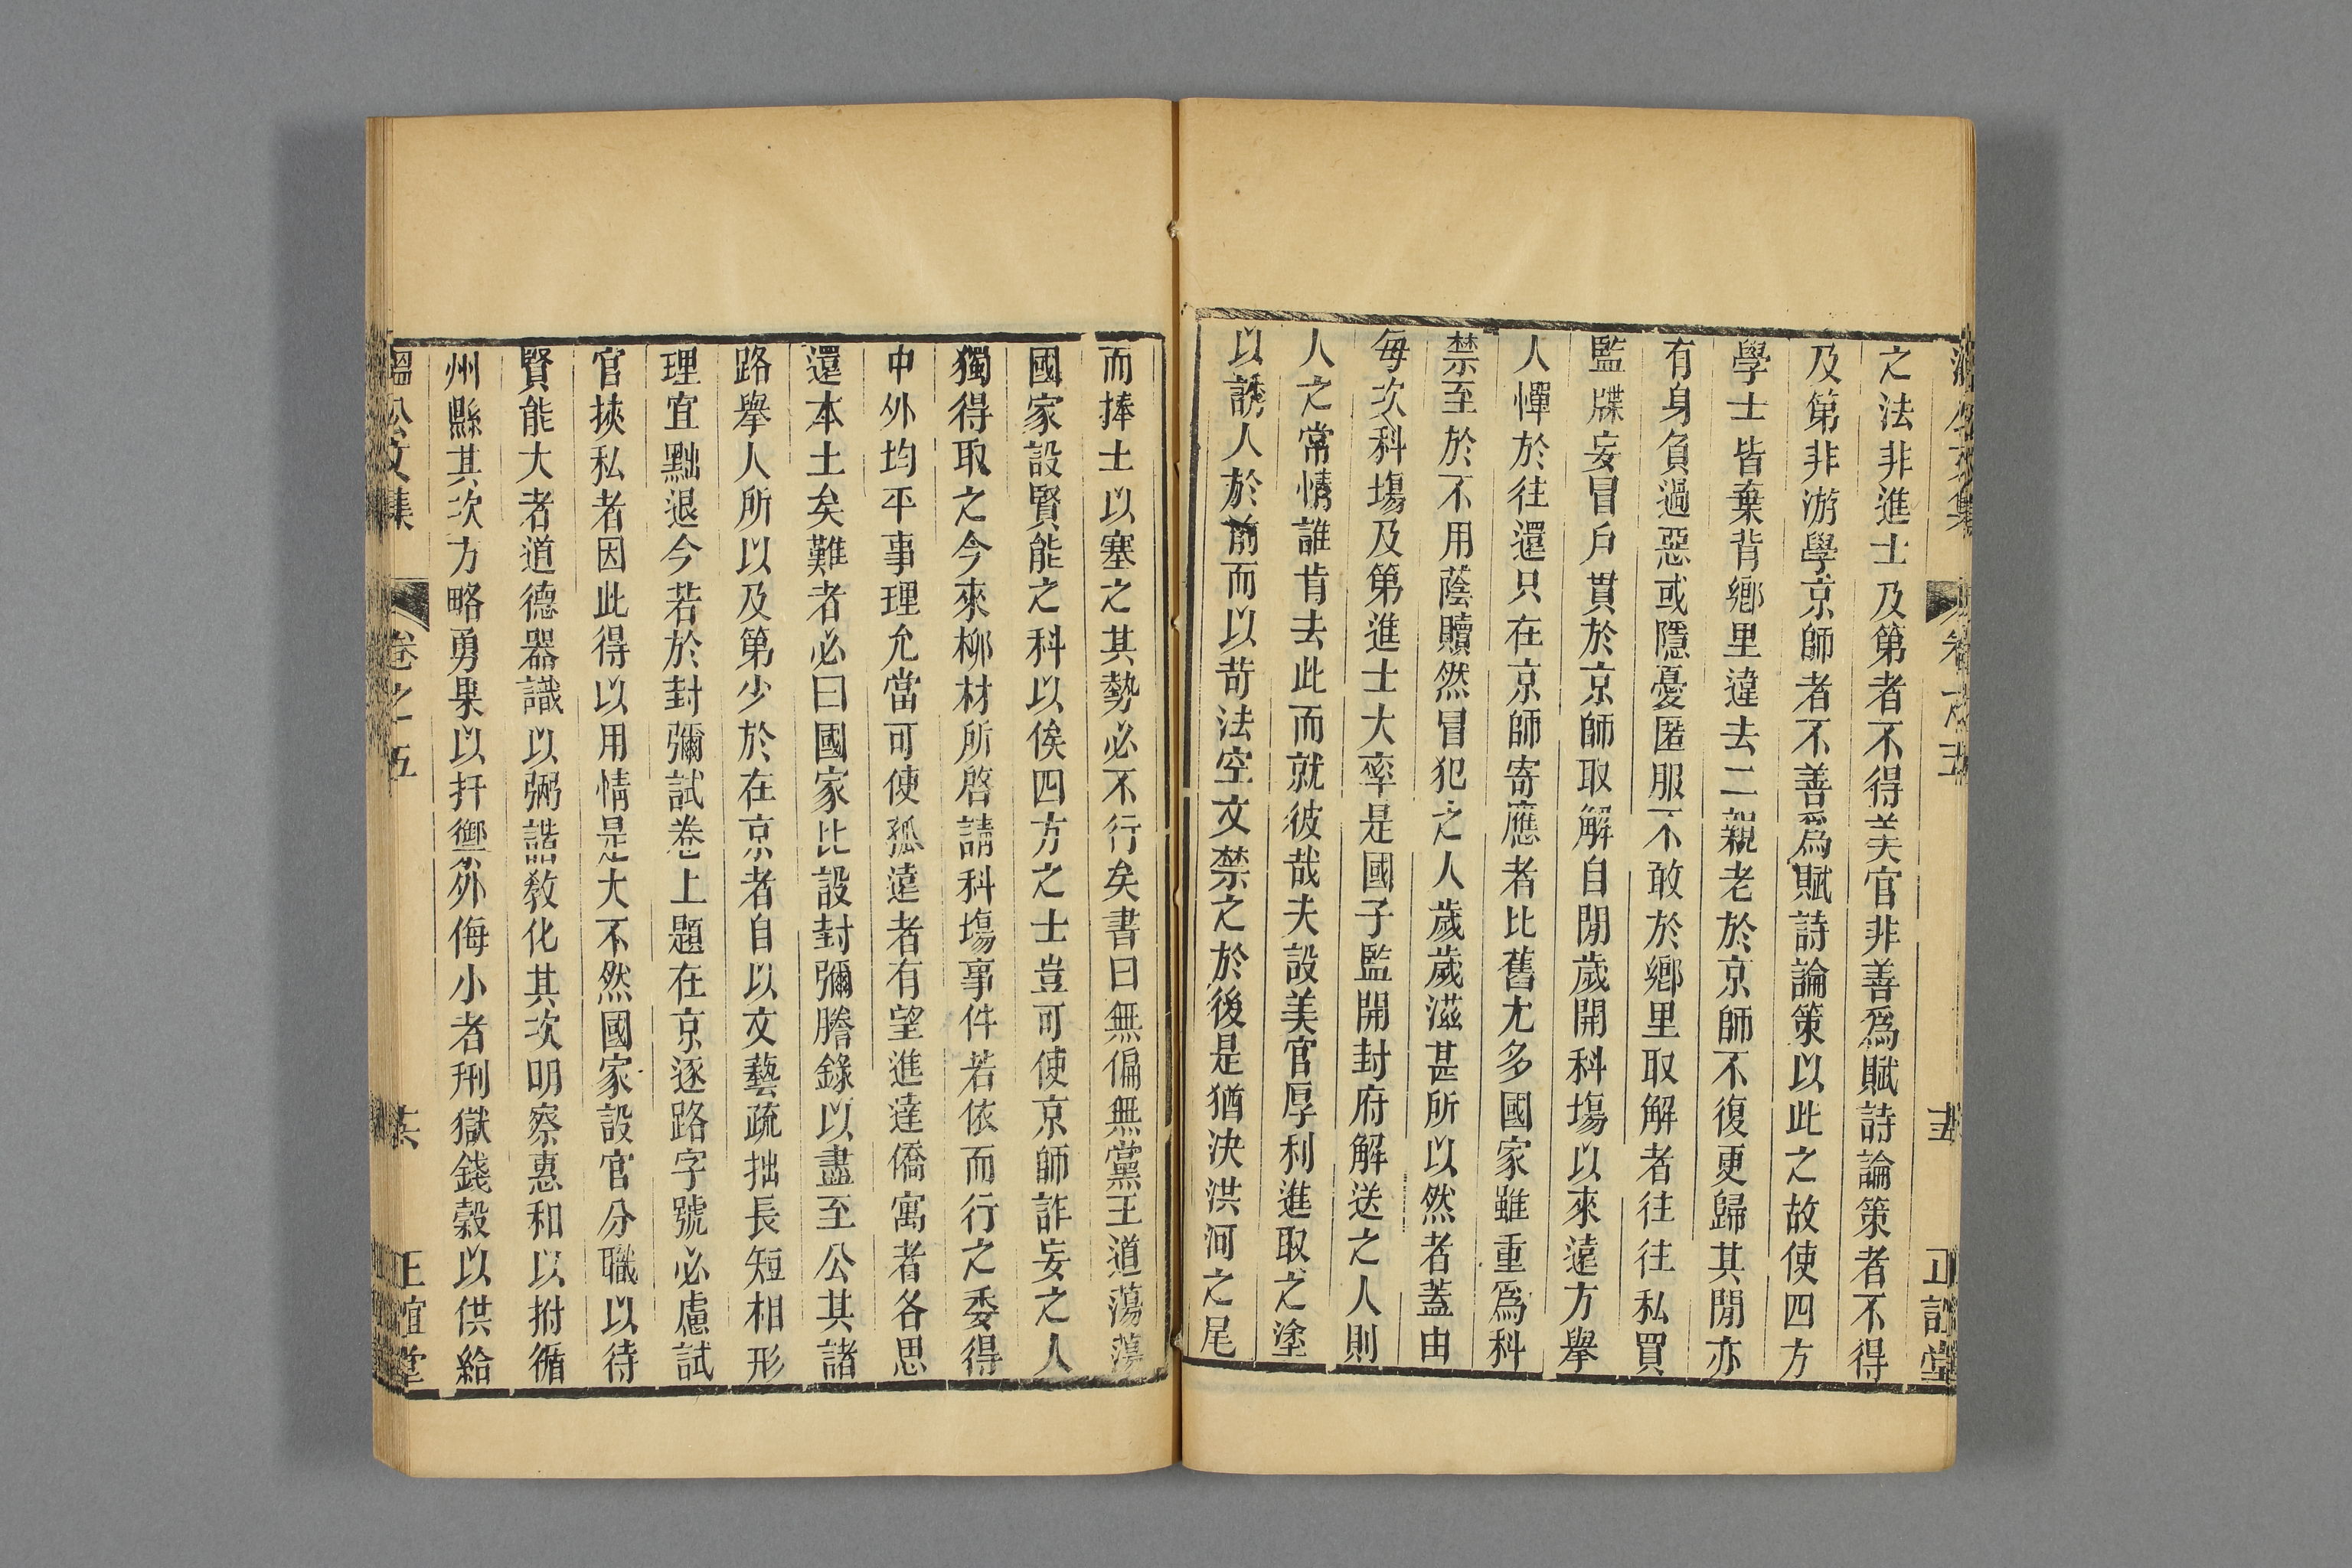 之法非進士及第者不得美官非善爲賦詩論策者不得
及第非游學京師者不善爲賦詩論策以此之故使四方
學士皆棄背鄉里違去二親老於京師不復更歸其閒亦
有身負過惡或隱憂匿服不敢於鄉里取解者往往私買
監牒妄冒戶貫於京師取解自閒歲開科場以來遠方舉
人憚於往還只在京師寄應者比舊尤多國家雖重爲科
禁至於不用蔭贖然冒犯之人歲歲滋甚所以然者蓋由
每次科塲及第進士大率是國子監開封府解送之人則
人之常情誰肯去此而就彼哉夫設美官厚利進取之塗
以誘人於前而以苛法空文禁之於後是猶決洪河之尾
而捧土以塞之其勢必不行矣書曰無偏無黨王道蕩蕩
國家設賢能之科以俟四方之士豈可使京師詐妄之人
獨得取之今來柳材所啓請科塲事件若依而行之委得
中外均平事理允當可使孤遠者有望進達僑寓者各思
還本土矣難者必曰國家比設封彌謄錄以盡至公其諸
路舉人所以及第少於在京者自以文藝疏拙長短相形
理宜黜退今若於封彌試卷上題在京逐路字號必慮試
官挾私者因此得以用情是大不然國家設官分職以待
賢能大者道德器識以弼諧敎化其次明察惠和以拊循
州縣其次方略勇果以扞禦外侮小者刑獄錢穀以供給
溫公文集 卷之五 共 正誼堂